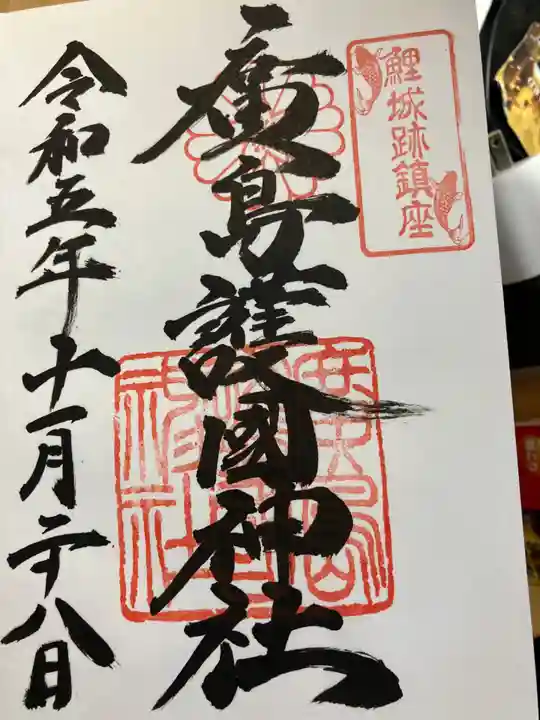 鯉城跡鎮座
廣島護國神社
令和五年十一月二十八日